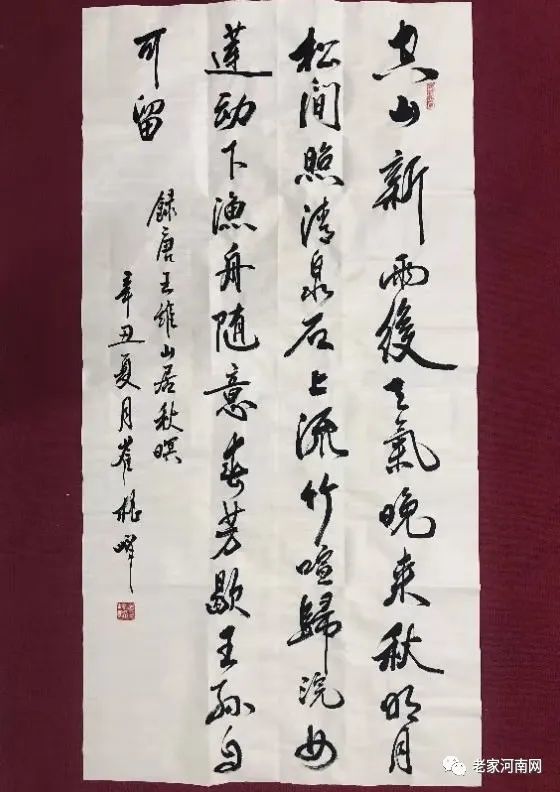 空山新雨後天氣晚来秋明月
松間照清泉石上流竹喧歸浣女
蓮動下漁舟随意春芳歇王孫自
可留
録唐王維山居秋暝
辛丑夏月崔峰
老家河南网